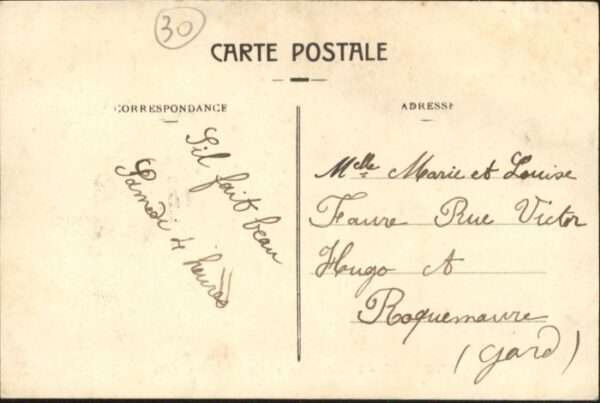 30
CARTE POSTALE
CORRESPONDANCE
S'il fait beau
Samedi 4 heures
ADRESSE
Melle Marie et Louise
Faure Rue Victor
Hugo A
Roquemaure
(Gard)